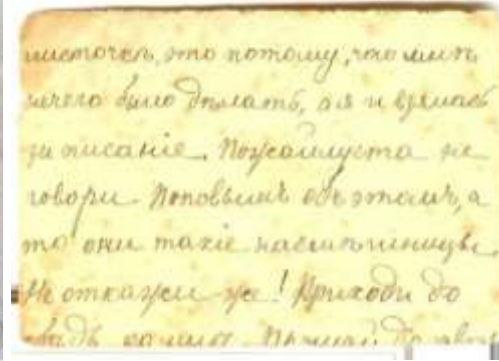 листочекъ, это потому, что мнѣ
нечего было дѣлать, а я и взялась
за писаніе. Пожалууста не
говори Поповымъ объ этомъ, а
то они такіе насмѣшницы.
Не откажи же! Приходи до